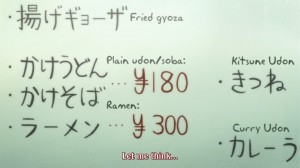 ・揚げギョーザ Fried gyoza
Plain udon/soba:
・かけうどん
・かけそば … ¥180
Ramen:
・ラーメン … ¥300
Kitsune Udon
・きつね
Curry Udon
・カレーう
Let me think...